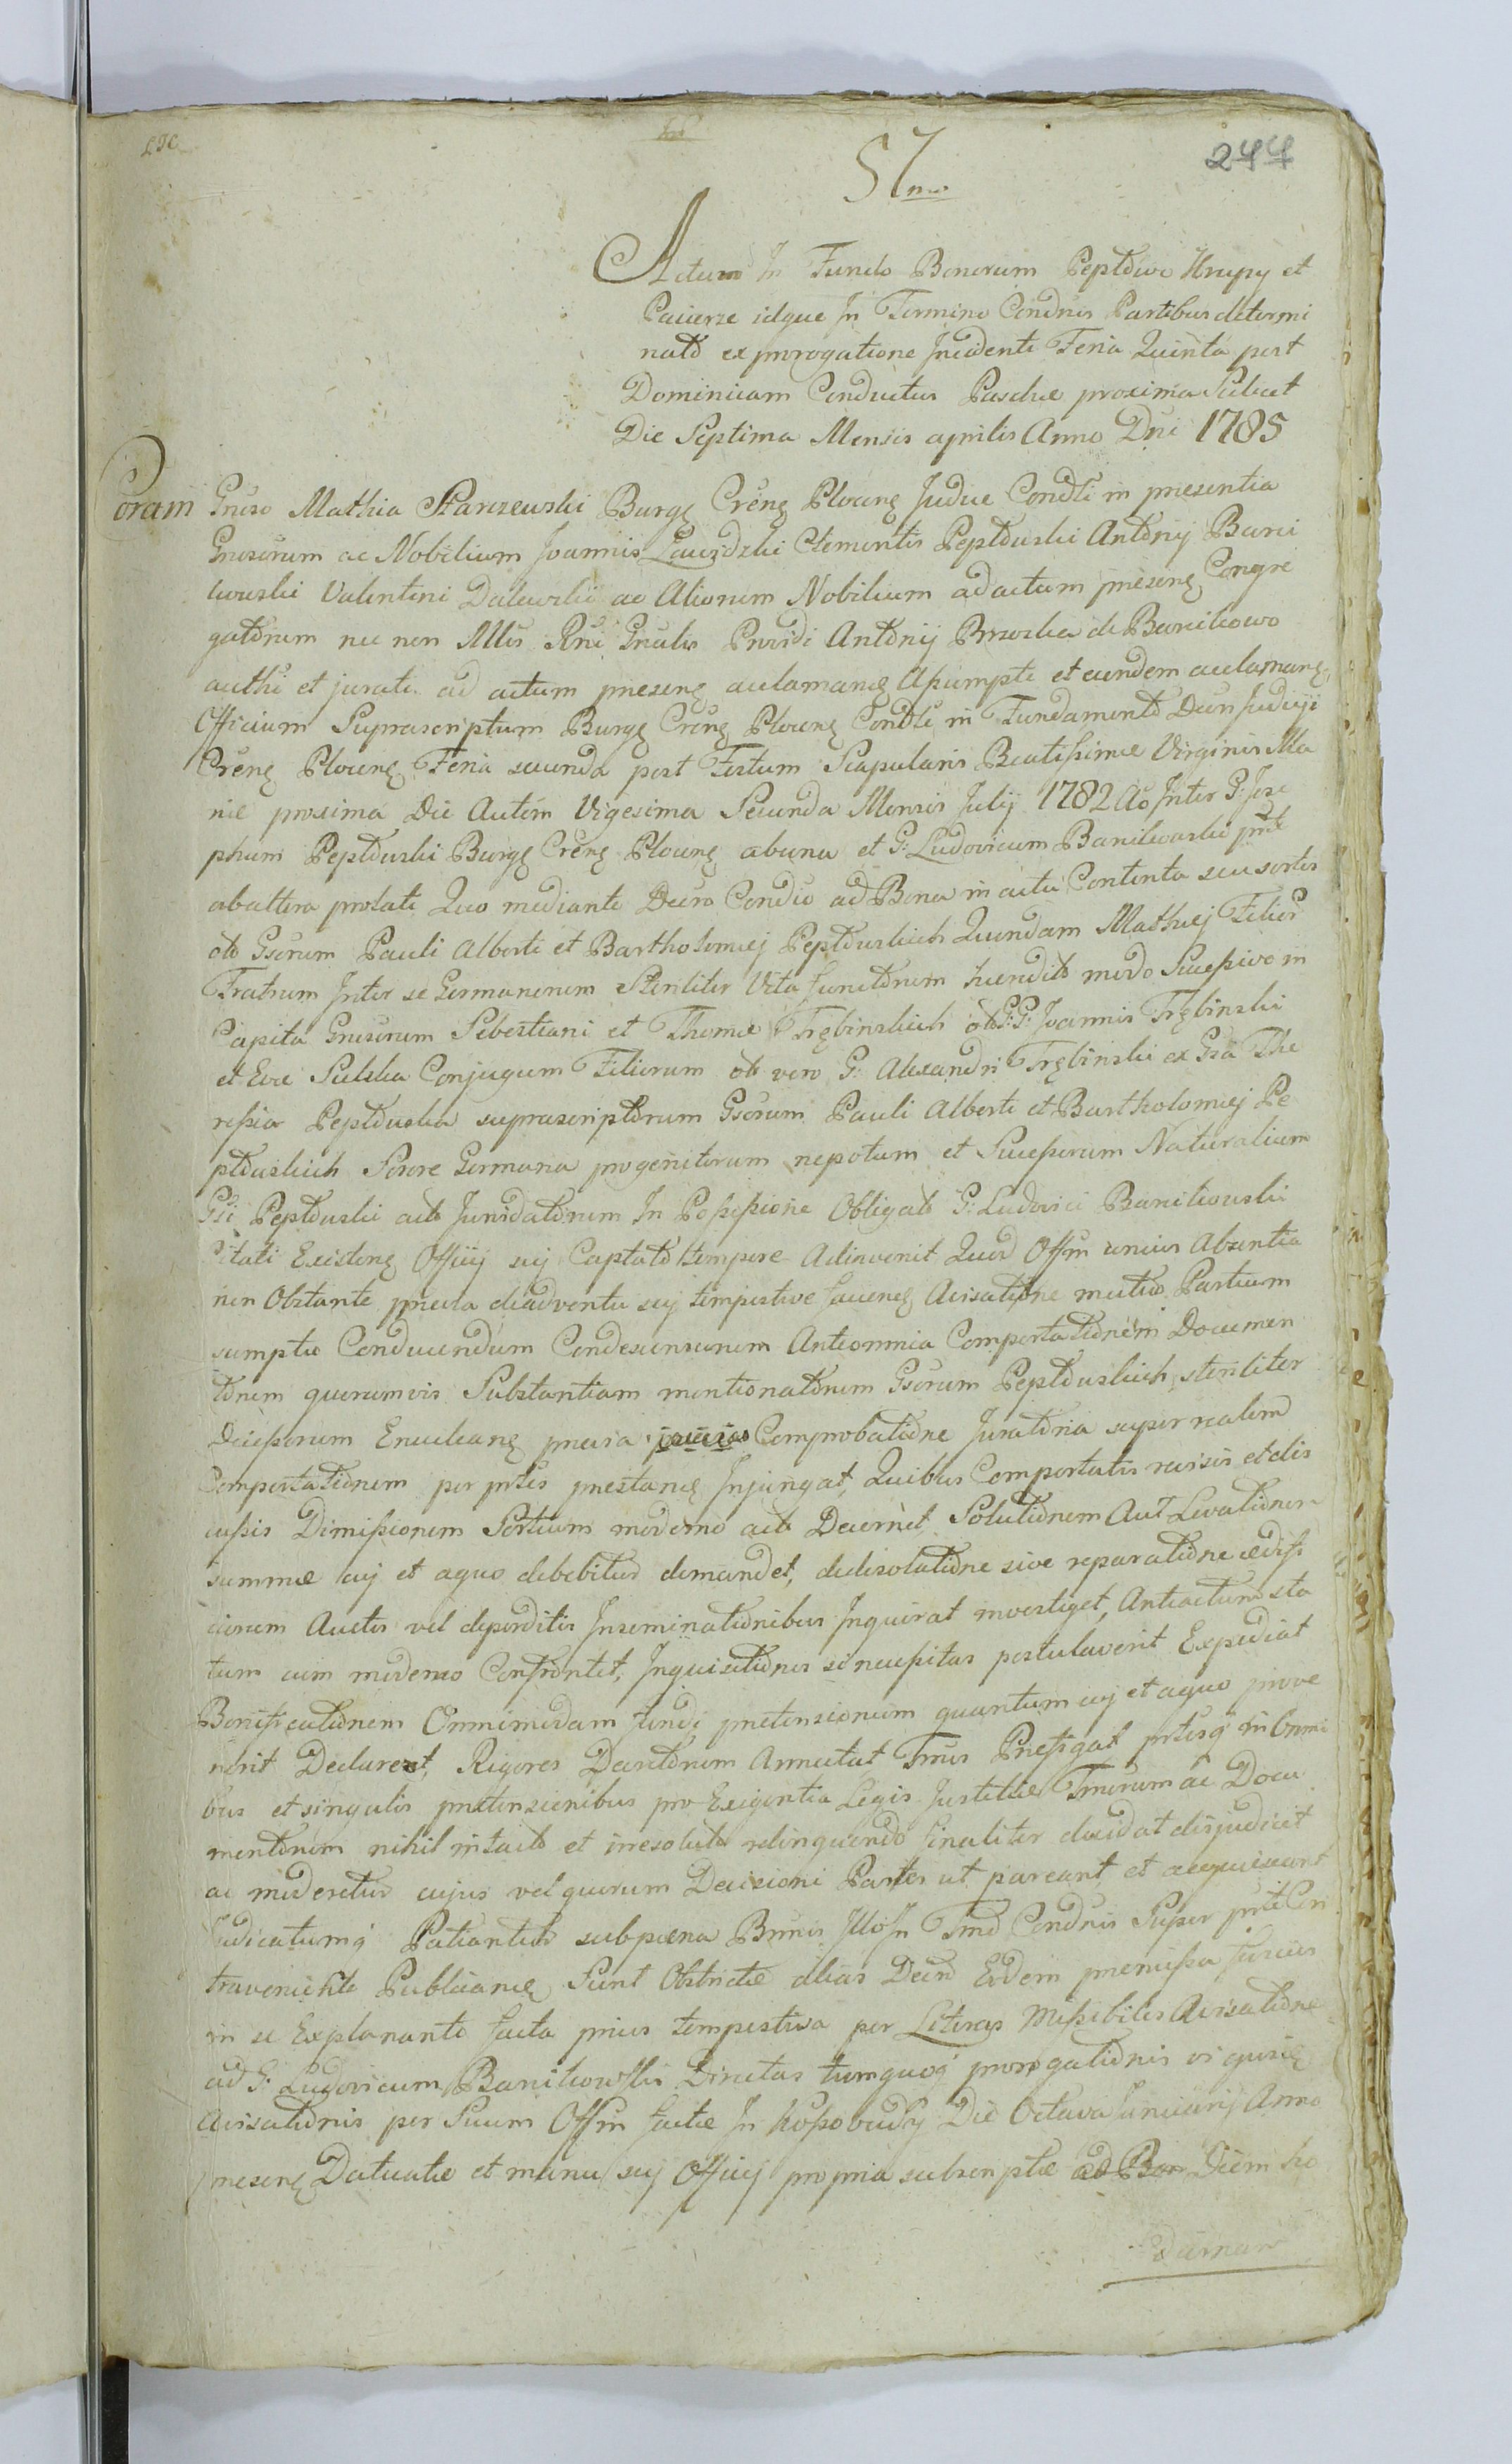 244
57mo
Actum In Fundo Bonorum Pepłowo Krupy et
Pacierze idque In Termino Condnis Partibus determi
nato ex prorogatione Incidenti Feria Quinta post
Dominicam Conductus Paschæ proxima Scilicet
Die Septima Mensis aprilis Anno Dni 1785
Coram Gnroso Mathia Starzewski Burgę Crenę Plocenę Judice Condli in præsentia
Gnrosorum ac Nobilium Joannis Clementis Pepłowski Antonij Bani
kowski Valentini Dalewski ac Aliorum Nobilium ad actum præsenę Congre
gatorum nec non Mlis Rni Gnalis Providi Antonij Brzoska de Banikowo
authi et jurati ad actum præsenę aclamanę Assumpti et eundem aclamanę
Officium Suprascriptum Burgę Crenę Plocenę Condli in Fundamento Decri Judicÿ
Crenę Plocenę Feria secunda post Festum Scapularis Beatissimæ Virginis Ma
riæ proxima Die Autem Vigesima Secunda Mensis Julij 1782 Ao Inter G: Jose
phum Pepłowski Burgę Crenę Plocenę ab una et G: Ludovicum Banikowski
ab altera prolati Quo mediante Decro Condio ad Bona in actu Contenta seu sortes
ob Gsorum Pauli Alberti et Bartholomæj Pepłowskich Quondam Mathiej Filior
Fratrum Inter se Germanorum Steriliter Vita functorum hæredito modo Sucessivo in
Capita Gnrosorum Sebestiani et Thomæ Trębinskich ob G:G: Joannis Trębinski
et Evæ Sulska Conjugum Filiorum ob vero G: Alexandri Trębinski ex Gsa The
ressia Pepłowska suprascriptorum Gsorum Pauli Alberti et Bartholomæj Pe
płowskich Sorore Germana progenitorum nepotum et Sucessorum Naturalium
Gsi Pepłowski acto Inundatorum In Possessione Obligato G: Ludovici Banikowski
itali Existenę Officij sui Captato tempore Adinvenit Quod Offm unius Absentia
non Obstante prævia de adventu suij tempestive facienę Avisatione mutuo Partium
sumptu Conducendum Condescensurum Ante omnia Comportationem Documen
torum quorumvis Substantiam mentionatorum Gsorum Pepłowskich steriliter
Decessorum Enucleanę prævia Comprobatione Juratoria super realem
Comportationem per prtes præstanę Injungat, Quibus Comportatis revisis et dis
cussis Dimissionem Sortium moderno acto Decernet Solutionem Aut Levationem
summæ cuj et aquo debebitur demandet, de desolatione sive reparatione ædifi
ciorum Auctis vel deperditis Inseminationibus Inquirat investiget, Anteactum sta
tum cum moderno Confrontet, Inquisitiones si necessitas postulaverit Expediat
Bonificationem Omnimodam fundj prætensionum quantum cuj et aquo prove
nerit Declaret, Rigores Decretorum Annectat Tnus Præfigat prtesq in Omni
bus et singulis prætensionibus pro Exigentia Legis Justitiæ Tmorum ac Docu
mentorum nihil intacto et irresoluto relinquendo finaliter decidat disjudicet
ac moderetur cujus vel quorum Decisioni Partes ut pareant et acquiescant
Judicatumq Patiantur sub pæna Bnnis Illo In Tmo Condnis Super
traveniente Publicanę Sunt Obstrictæ alias Decro Eodem præmissa fusius
in se Explananti facta prius tempestiva per Literas Missibiles Avisatione
ad G: Ludovicum Banikowski Directas tum quoq prorogationis vi
avisationis per Suum Offm factæ In Die Octava Januarij Anno
præsenę Datuatæ et manu suj Officij propria subscriptæ ad Bon Diem ho
diernam